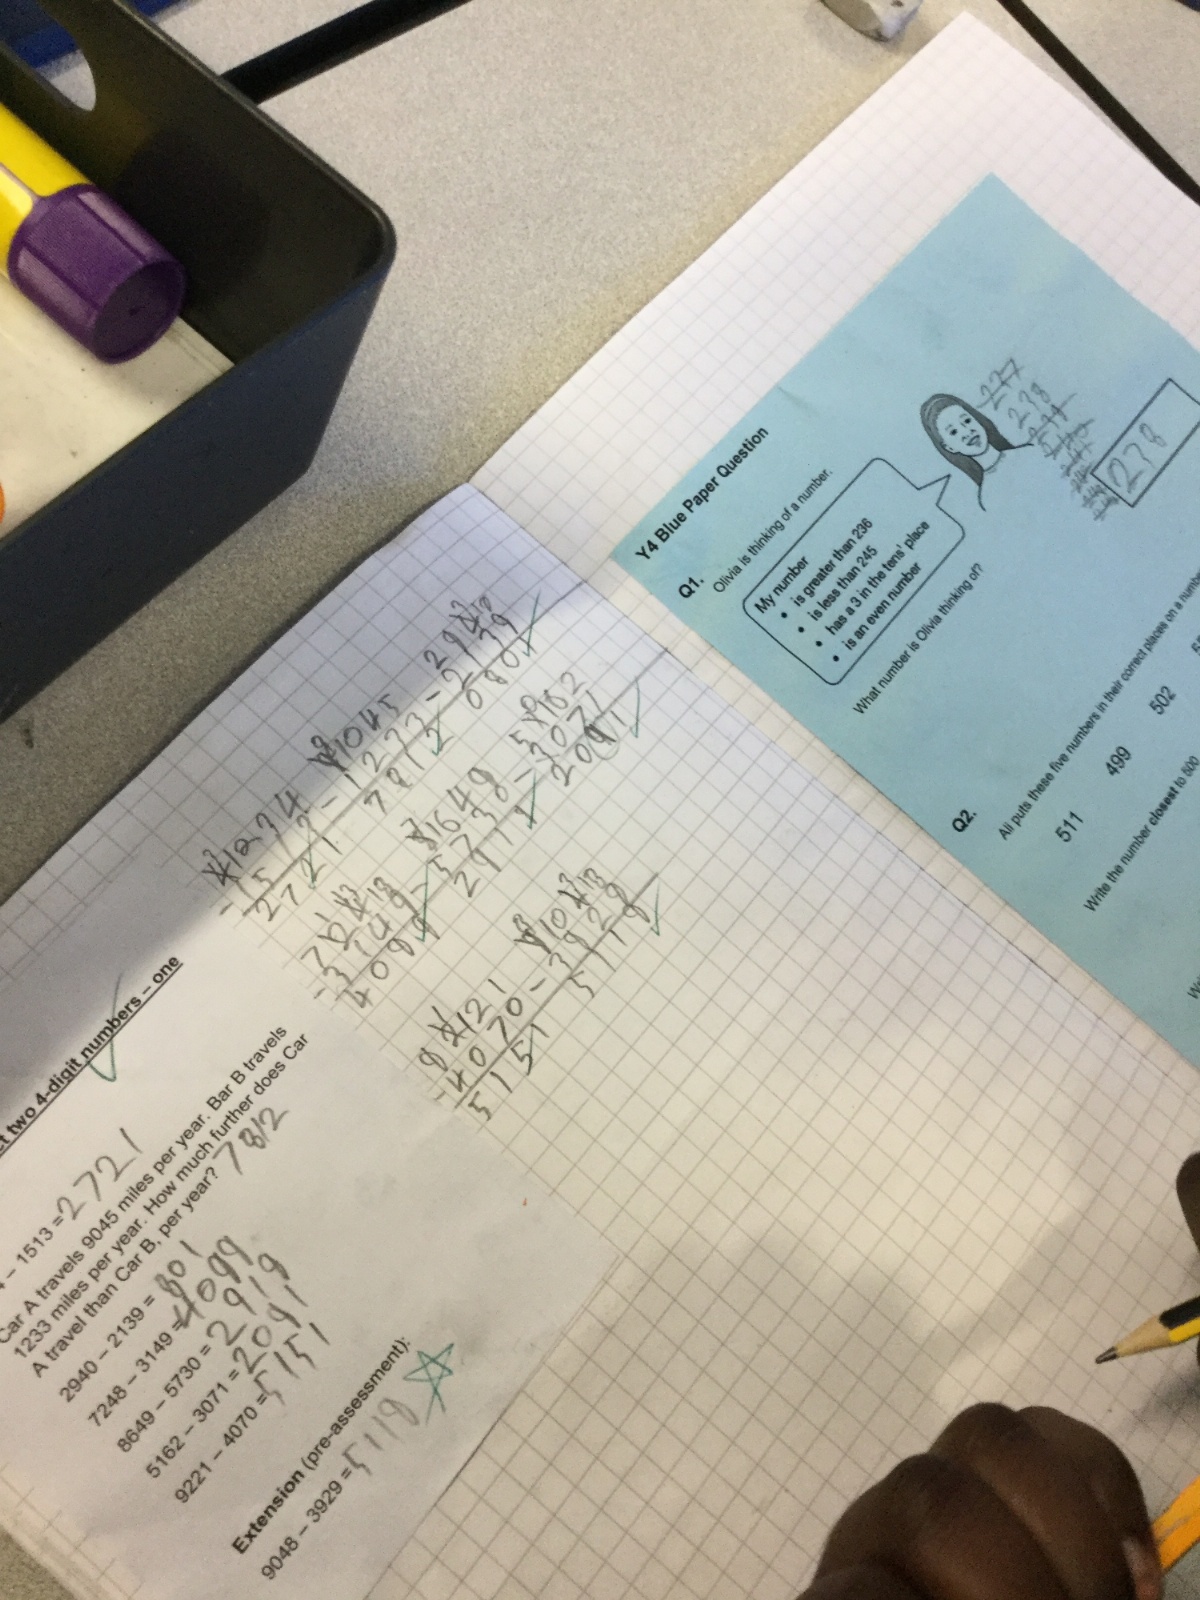 ct two 4-digit numbers – one
4 – 1513 = 2721
Car A travels 9045 miles per year. Bar B travels
1233 miles per year. How much further does Car
A travel than Car B, per year? 7812
2940 – 2139 = 801
7248 – 3149 = 4099
8649 – 5730 = 2919
5162 – 3071 = 2091
9221 – 4070 = 5151
Extension (pre-assessment):
9048 – 3929 = 5119
2721
- 1233
7812
- 2139
0801
- 3149
4099
- 5730
2919
- 3071
2091
- 4070
5151
- 3929
5119
Y4 Blue Paper Question
Q1.
Olivia is thinking of a number.
My number
• is greater than 236
• is less than 245
• has a 3 in the tens' place
• is an even number
What number is Olivia thinking of?
238
238
Q2.
Ali puts these five numbers in their correct places on a number
511 499 502
Write the number closest to 500